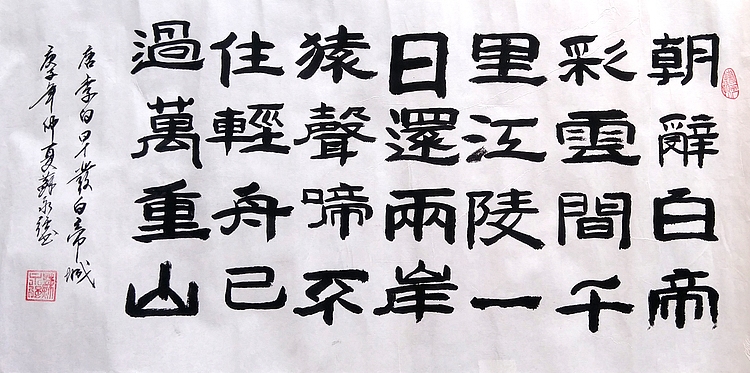 朝辭白帝
彩雲間千
里江陵一
日還兩岸
猿聲啼不
住輕舟已
過萬重山
唐李白早發白帝城
庚子年仲夏